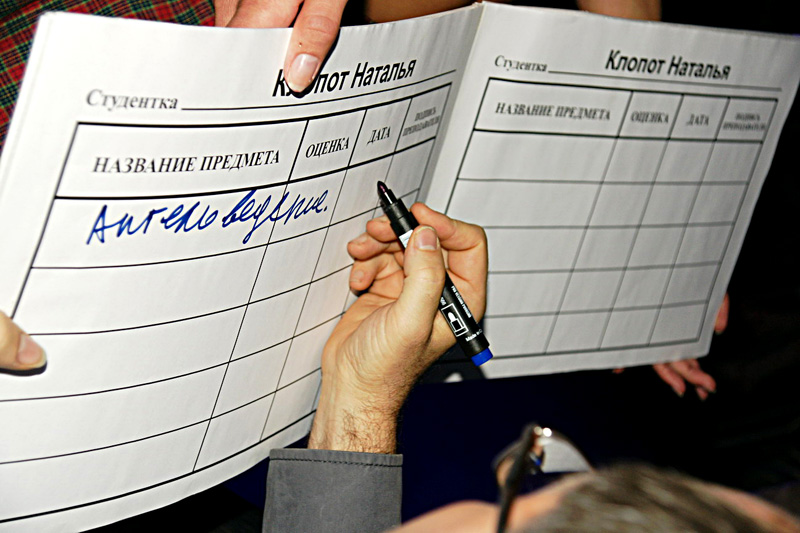 Студентка Клопот Наталья
НАЗВАНИЕ ПРЕДМЕТА ОЦЕНКА ДАТА ПОДПИСЬ ПРЕПОДАВАТЕЛЯ
Ангеловедение.
Студентка Клопот Наталья
НАЗВАНИЕ ПРЕДМЕТА ОЦЕНКА ДАТА ПОДПИСЬ ПРЕПОДАВАТЕЛЯ